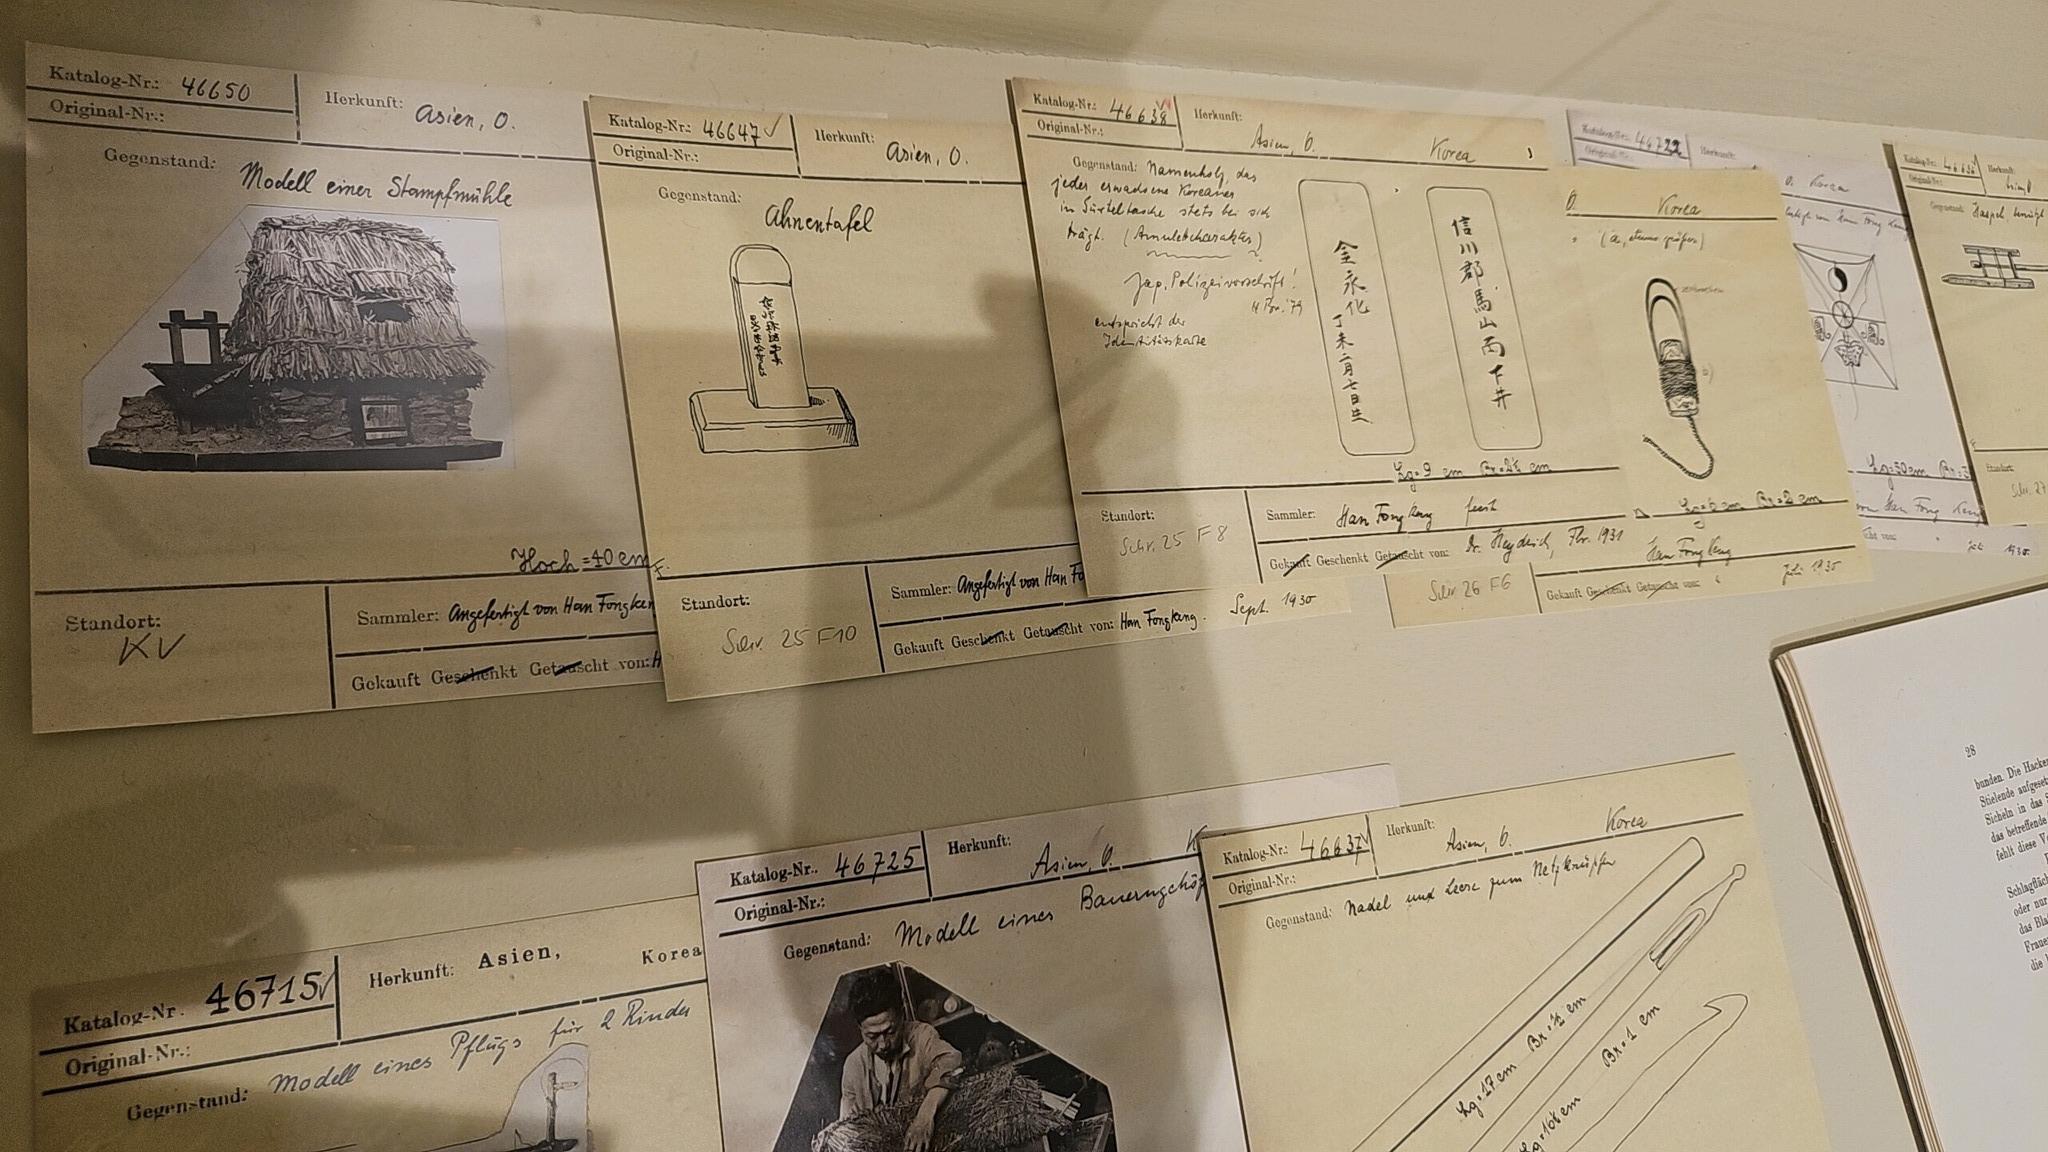 Katalog-Nr.: 46650
Original-Nr.:
Herkunft: Asien, O.
Gegenstand: Modell einer Stampfmühle
Hoch = 40 cm
Standort: KV
Sammler: Angefertigt von Han Fongken
Gekauft Geschenkt Getauscht von: H
Katalog-Nr.: 46647
Original-Nr.:
Herkunft: Asien, O.
Gegenstand: Ahnentafel
Standort:
Schr. 25 F10
Sammler: Angefertigt von Han Fo
Gekauft Geschenkt Getauscht von: Han Fongkeng. Sept. 1930
Katalog-Nr.: 46638
Original-Nr.:
Herkunft: Asien, O. Korea
Gegenstand: Namenholz, das
jeder erwachsene Koreaner
in Gürteltasche stets bei sich
trägt. (Amuletcharakter)
Jap. Polizeivorschrift!
entspricht der
Identitätskarte
金永化
丁未二月七日生
信川郡馬山面
井
Lg = 9 cm Br = 2½ cm
Standort:
Schr. 25 F8
Sammler: Han Fongkeng
Gekauft Geschenkt Getauscht von: Dr. Heydrich, Fbr. 1931
O. Korea
(a, etwas größer)
b)
Br = 2 cm
Schr 26 F6
Han Fongkeng
Gekauft Geschenkt Getauscht von: Juli 1930
Katalog-Nr.: 46722
Original-Nr.:
Herkunft:
O. Korea
Lg = 50 cm Br = 3
von Han Fong Keng
1930
Katalog-Nr.: 4663
Original-Nr.:
Herkunft:
Gegenstand: Haspel, benützt
Standort:
Schr. 27
Katalog-Nr. 46715
Original-Nr.:
Herkunft: Asien, Korea
Gegenstand: Modell eines Pflugs für 2 Rinder
Katalog-Nr.. 46725
Original-Nr.:
Herkunft: Asien, O. K
Gegenstand: Modell eines Bauerngehöf
Katalog-Nr.: 46637
Original-Nr.:
Herkunft: Asien, O. Korea
Gegenstand: Nadel und Leere zum Netzknüpfen
Lg = 17 cm Br = ½ cm
Lg = 16½ cm Br = 1 cm
28
bunden. Die Hacken
Stielende aufgeset
Sicheln in das S
das betreffende
fehlt diese V
Schlagfläch
oder nur
das Bla
Frauen
die